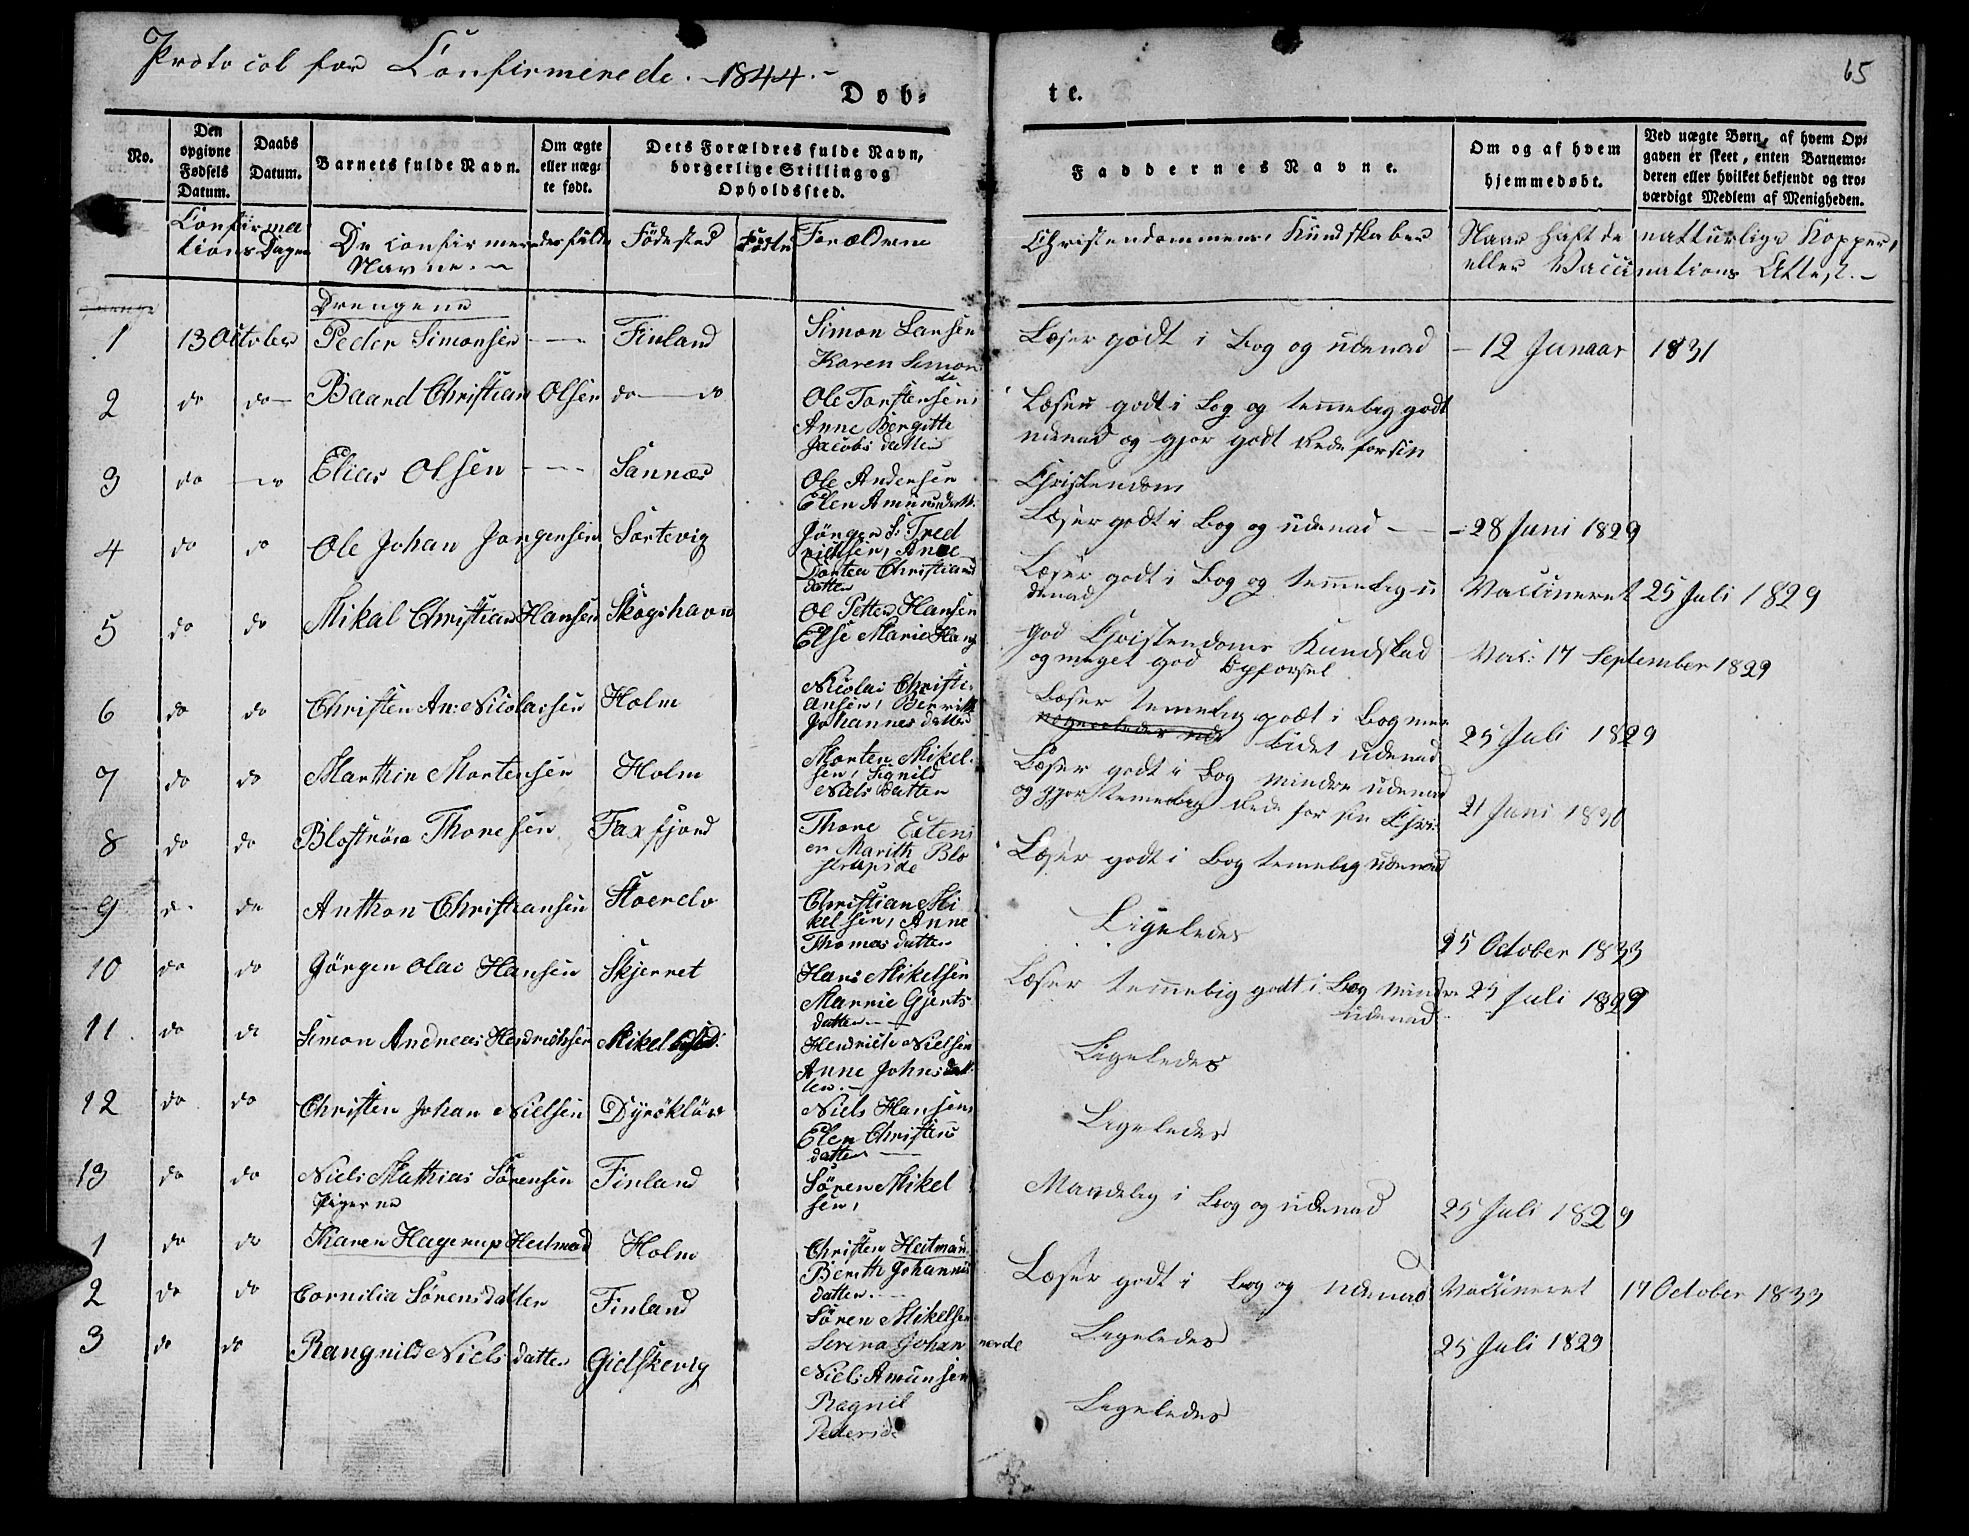 Protocol for Confirmerede. - 1844. -
65
Døb-
te.
No.
Den opgivne Fødsels Datum.
Daabs Datum.
Barnets fulde Navn.
Om ægte eller uægte født.
Dets Forældres fulde Navn, borgerlige Stilling og Opholdssted.
Faddernes Navne.
Om og af hvem hjemmedøbt.
Ved uægte Børn, af hvem Opgaven er skeet, enten Barnemoderen eller hvilket bekjendt og troværdigt Medlem af Menigheden.
Confirmations Dagen
De confirmeredes fulde Navne. -
Fødested
Forældrene
Christendommens Kundskaber
Naar haft de naturlige Kopper, eller Vaccinations Attest. -
Drengene
1 13 October Peder Simonsen - - - Finland Simon Larsen Karen Simonsde Læser godt i Bog og udenad - 12 Januar 1831
2 do do - Baard Christian Olsen do - do Ole Torstensen, Anne Bergitte Jacobsdatter Læser godt i Bog og temmelig godt udenad og gjør godt Rede for sin Christendom
3 do - do Elias Olsen - - - Sannæs Ole Andersen Elen Amundsdatt. Læser godt i Bog og udenad - - 28 Juni 1829
4 do do Ole Johan Jørgensen Sortevig Jørgen S: Fredrichsen, Anne Dorten Christiansdatter Læser godt i Bog og temmelig udenad Vaccineret 25 Juli 1829
5 do do Mikal Christian Hansen Skogshavn Ol Petter Hansen Else Marie Hans god Christendoms Kundskab og meget god Opførsel Vac: 17 September 1829
6 do do Christen An: Nicolaisen Holm Nicolai Christiansen, Berrith Johannesdatter Læser temelig godt i Bog men lidet udenad 25 Juli 1829
7 do do Marthin Mortensen Holm Morten Mikelsen, Signild Nielsdatter Læser godt i Bog mindre udenad og gjør temelig Rede for sin Chri: 21 Juni 1830
8 do do Thoresen Faxfjord Thore Marith Læser godt i Bog temelig udenad
9 do do Anthon Christiansen Christian Mikelsen, Anne Thomasdatter Ligeledes 25 October 1833
10 do do Jørgen Olai Hansen Skjerret Hans Mikelsen Marrie Gjertsdatter - Læser temmelig godt i Bog mindre udenad 25 Juli 1829
11 do do Simon Andreas Hendrichsen Hendrich Nielsen Anne Johnsdatter. - Ligeledes
12 do do Christen Johan Nielsen Dyrøkløv Niels Hansen, Elen Christensdatter - Ligeledes
13 do do Niels Mathias Sørensen Finland Søren Mikelsen, Maadelig i Bog og udenad 25 Juli 1829
Pigerne
1 do do Karen Hagerup Heitman Holm Christen Heitman Berith Johannisdatter. - Læser godt i Bog og udenad Vaccineret 17 October 1833
2 do do Cornilia Sørensdatter Finland Søren Mikelsen Serina Johan Ligeledes 25 Juli 1829
3 do do Rangnild Nielsdatter Gielskevig Niels Amunsen Ragnil Pedersd Ligeledes